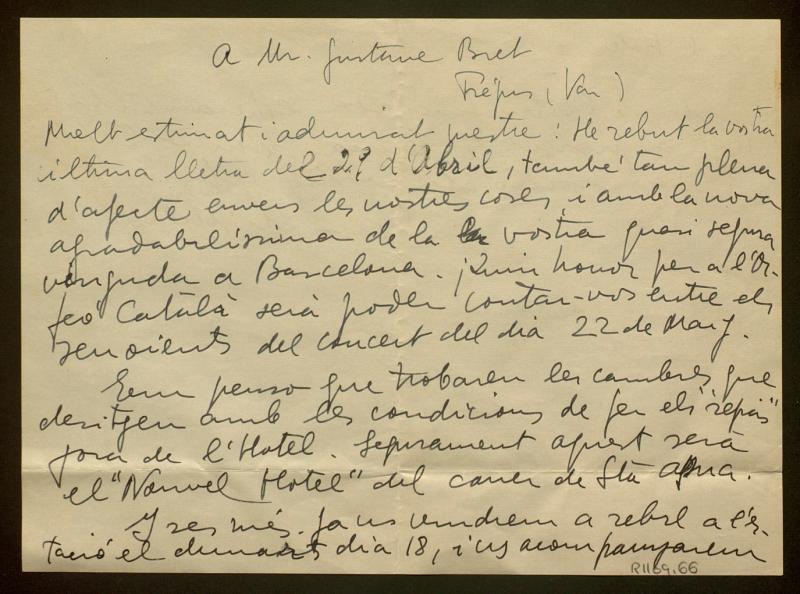 A Mr. Gustave Bret
Fréjus (Var)
Molt estimat i admirat mestre: He rebut la vostra
última lletra del 29 d'Abril, també tan plena
d'afecte envers les nostres coses, i amb la nova
agradabilíssima de la vostra quasi segura
vinguda a Barcelona. ¡Quin honor per a l'Or-
feó Català serà poder contar-vos entre els
del concert del dia 22 de Maig.
Em penso que trobarem les cambres que
desitgen amb les condicions de fer els "repàs"
fora de l'Hotel. Segurament aquest serà
el "Nouvel Hotel" del carrer de Sta Agna.
I res més. Ja us vindrem a rebre a l'es-
tació el dimarts dia 18, i us acompanyarem
R1169.66